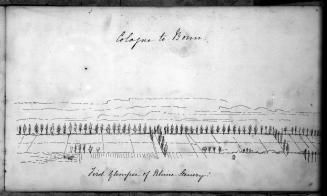 Cologne to Bonn.
First Glimpse of Rhine Scenery.